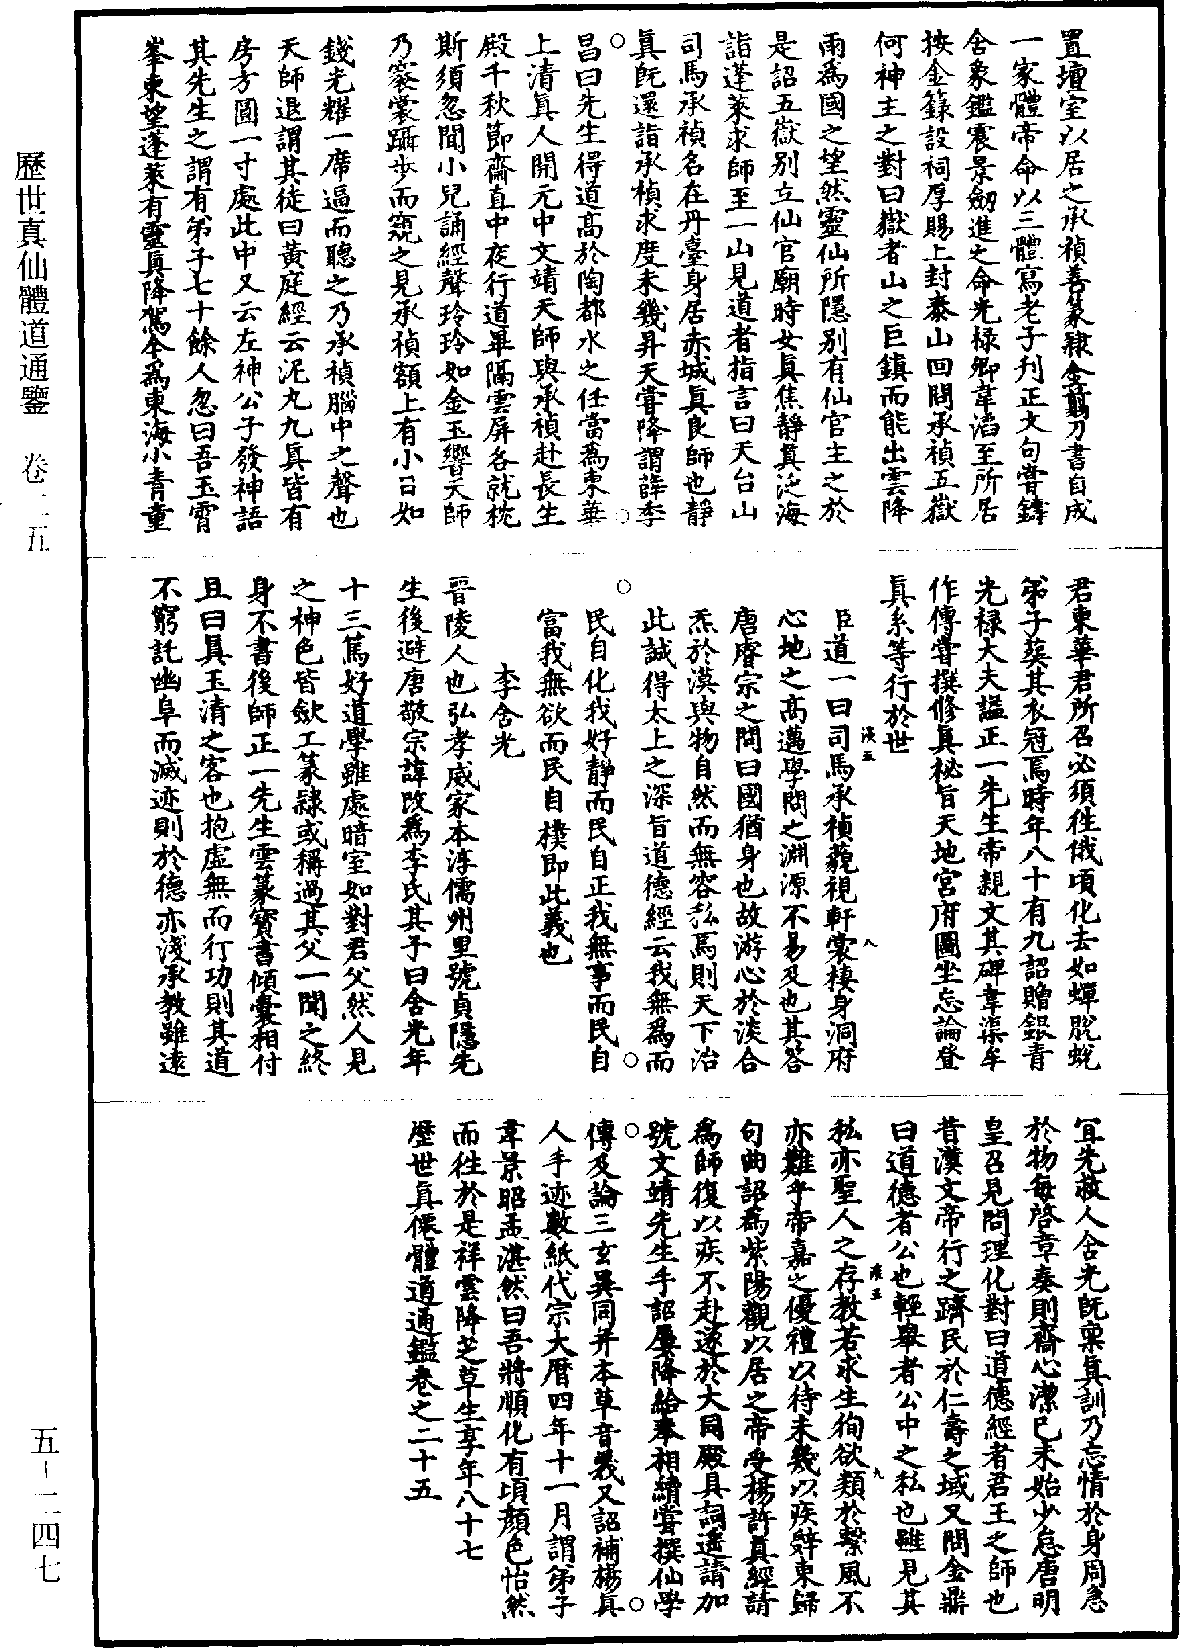 置壇室以居之承禎善篆隸金剪刀書自成
一家體帝命以三體寫老子刋正文句嘗鑄
舍象鑑震景劒進之命光祿卿韋滔至所居
按金籙設祠厚賜上封泰山回問承禎五嶽
何神主之對曰嶽者山之巨鎮而能出雲降
雨爲國之望然靈仙所隱別有仙官主之於
是詔五嶽別立仙官廟時女真焦靜真泛海
詣蓬萊求師至一山見道者指言曰天台山
司馬承禎名在丹臺身居赤城真良師也靜
真既還詣承禎求度未幾昇天嘗降謂薛季
昌曰先生得道高於陶都水之任當爲東華
上清真人開元中文靖天師與承禎赴長生
殿千秋節齋直中夜行道畢隔雲屏各就枕
斯須忽聞小兒誦經聲玲玲如金玉響天師
乃褰裳躡步而窺之見承禎額上有小日如
錢光耀一席逼而聽之乃承禎腦中之聲也
天師退謂其徒曰黃庭經云泥丸九真皆有
房方圓一寸處此中又云左神公子發神語
其先生之謂有弟子七十餘人忽曰吾玉霄
峯東望蓬萊有靈真降駕今爲東海小青童
君東華君所召必須徃俄頃化去如蟬脫蛻
弟子葬其衣冠焉時年八十有九詔贈銀青
光祿大夫謚正一先生帝親文其碑韋渠牟
作傳嘗撰修真秘旨天地宮府圖坐忘論登
真系等行於世
臣道一曰司馬承禎藐視軒裳棲身洞府
心地之高邁學問之淵源不易及也其答
唐睿宗之問曰國猶身也故游心於淡合
炁於漠與物自然而無容私焉則天下治
此誠得太上之深旨道德經云我無爲而
民自化我好靜而民自正我無事而民自
富我無欲而民自樸即此義也
李含光
晉陵人也弘孝威家本淳儒州里號貞隱先
生後避唐敬宗諱改爲李氏其子曰含光年
十三篤好道學雖處暗室如對君父然人見
之神色皆歛工篆隸或稱過其父一聞之終
身不書後師正一先生雲篆寶書傾囊相付
且曰真玉清之客也抱虛無而行功則其道
不窮託幽阜而滅迹則於德亦淺承教雖遠
冝先救人含光既稟真訓乃忘情於身周急
於物每啓章奏則齋心潔已未始少怠唐明
皇召見問理化對曰道德經者君王之師也
昔漢文帝行之躋民於仁壽之域又問金鼎
曰道德者公也輕舉者公中之私也雖見其
私亦聖人之存教若求生徇欲類於繫風不
亦難乎帝嘉之優禮以待未幾以疾辭東歸
句曲詔爲紫陽觀以居之帝受楊許真經請
爲師復以疾不赴遂於大同殿具詞遙請加
號文靖先生手詔屢降給奉相續嘗撰仙學
傳及論三玄異同并本草音義又詔補楊真
人手迹數紙代宗大曆四年十一月謂弟子
韋景昭孟湛然曰吾將順化有頃顏色怡然
而徃於是祥雲降芝草生享年八十七
歷世真僊體道通鑑卷之二十五
歷世真仙體道通鑒 卷二五
五-二四七